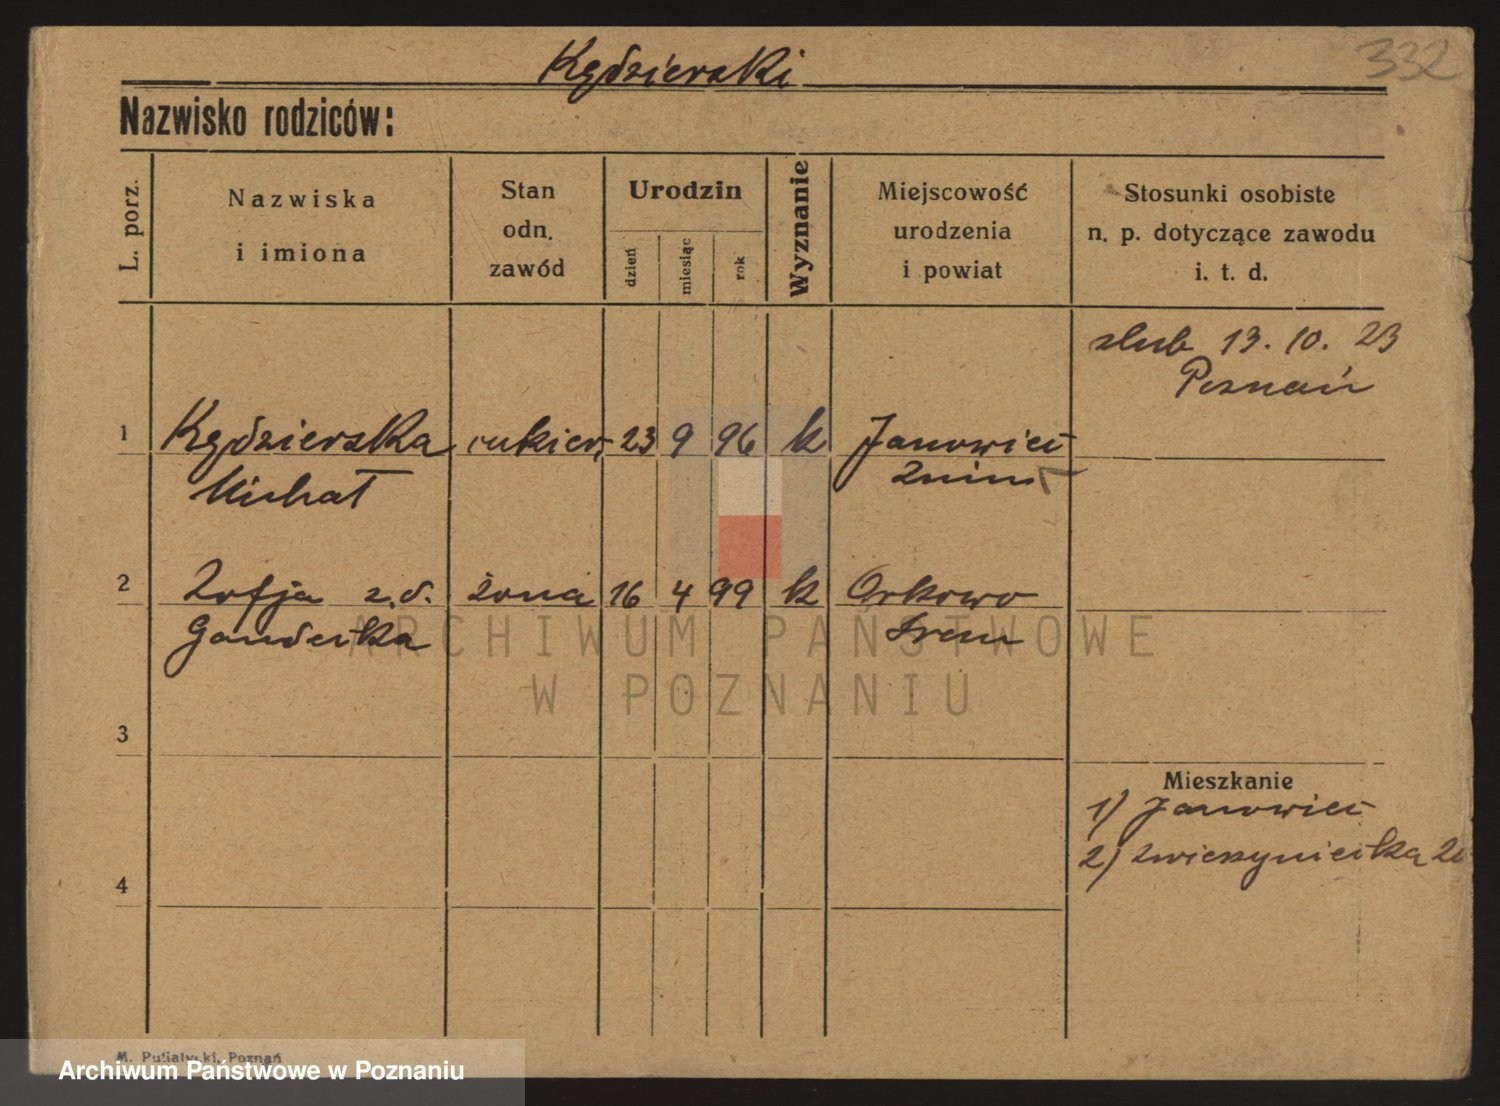 332
Kędzierski
Nazwisko rodziców:
L. porz.
Nazwiska
i imiona
Stan
odn.
zawód
Urodzin
dzień
miesiąc
rok
Wyznanie
Miejscowość
urodzenia
i powiat
Stosunki osobiste
n. p. dotyczące zawodu
i. t. d.
ślub 13. 10. 23
Poznań
1 Kędzierska cukier. 23 9 96 k Janowiec
Michał Żnin
2 Zofja z.d. żona 16 4 99 k Orkowo
Gandecka Śrem
3
Mieszkanie
1) Janowiec
2) Zwierzyniecka 20
4
ARCHIWUM PAŃSTWOWE
W POZNANIU
M. Putiatycki, Poznań
Archiwum Państwowe w Poznaniu